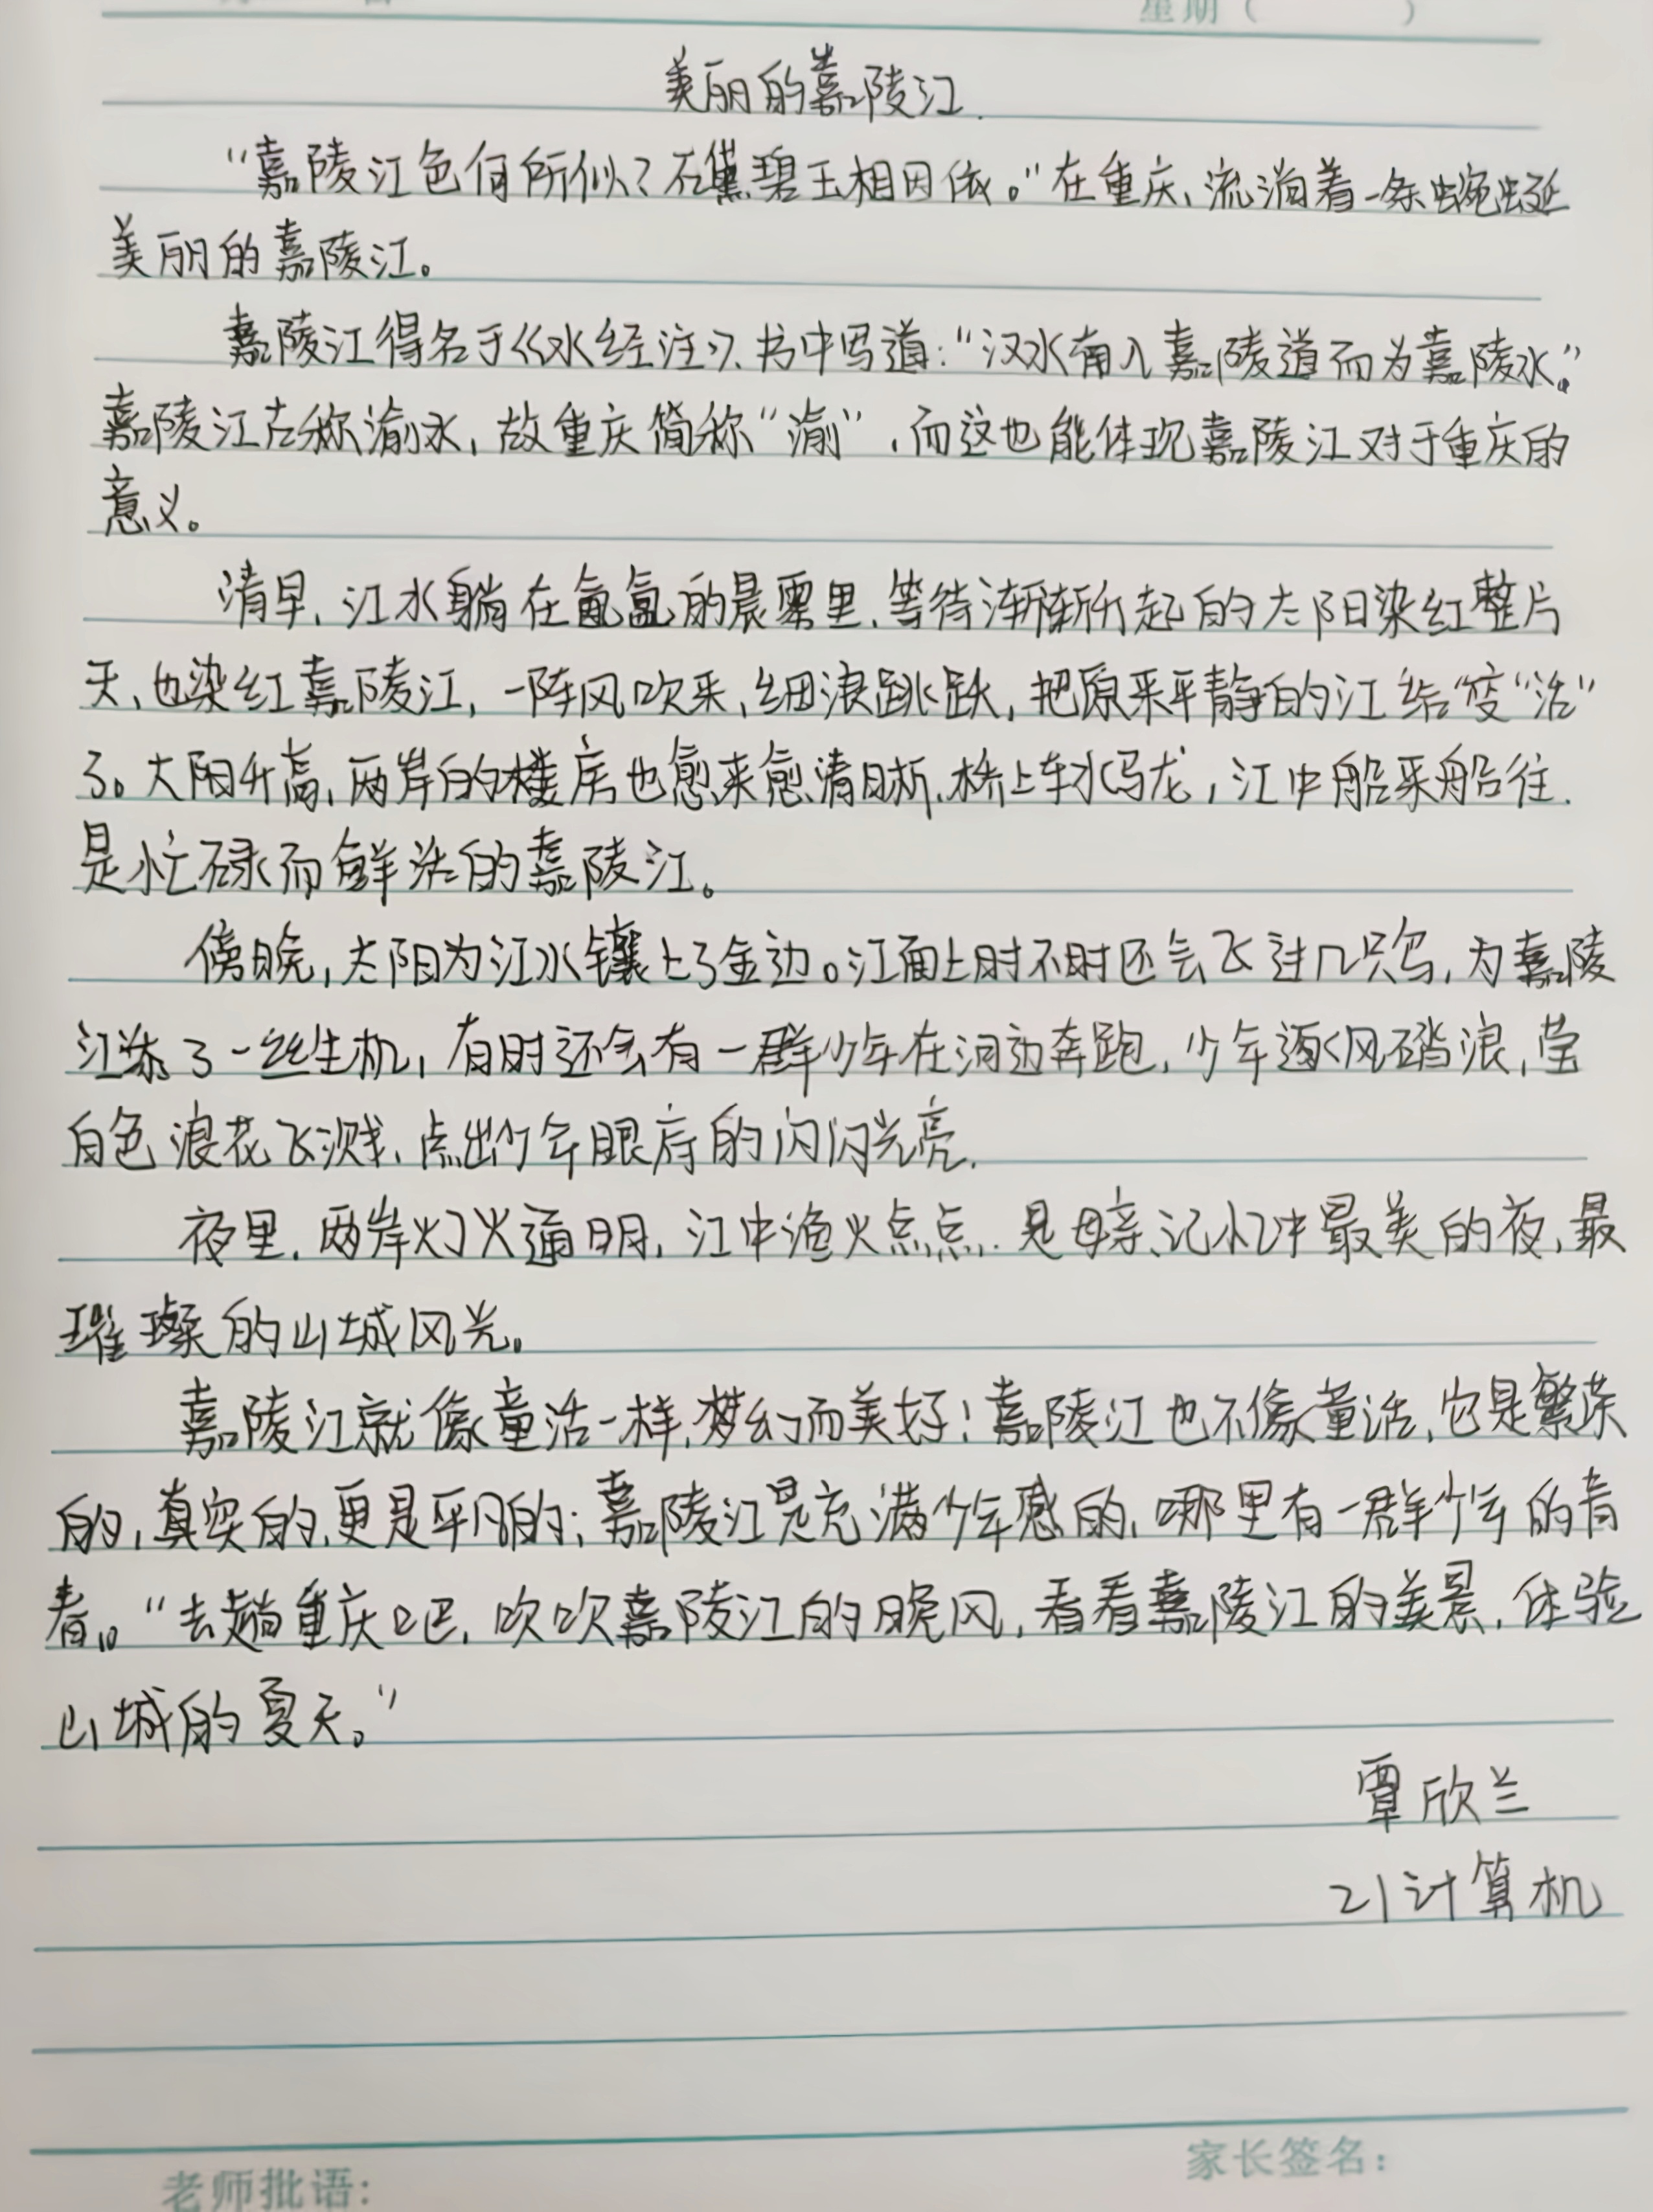 星期（　　）
美丽的嘉陵江
“嘉陵江色何所似？石黛碧玉相因依。”在重庆，流淌着一条蜿蜒
美丽的嘉陵江。
嘉陵江得名于《水经注》，书中写道：“汉水南入嘉陵道而为嘉陵水。”
嘉陵江古称渝水，故重庆简称“渝”，而这也能体现嘉陵江对于重庆的
意义。
清早，江水躺在氤氲的晨雾里，等待渐渐升起的太阳染红整片
天，也染红嘉陵江，一阵风吹来，细浪跳跃，把原来平静的江给“变“活”
了。太阳升高，两岸的楼房也愈来愈清晰，桥上车水马龙，江中船来船往，
是忙碌而鲜活的嘉陵江。
傍晚，太阳为江水镶上了金边。江面上时不时还会飞过几只鸟，为嘉陵
江添了一丝生机，有时还会有一群少年在河边奔跑，少年逐风踏浪，莹
白色浪花飞溅，点出少年眼底的闪闪光亮。
夜里，两岸灯火通明，江中渔火点点，是母亲记忆中最美的夜，最
璀璨的山城风光。
嘉陵江就像童话一样，梦幻而美好！嘉陵江也不像童话，它是繁荣
的，真实的，更是平凡的；嘉陵江是充满少年感的，哪里有一群少年的青
春。“去趟重庆吧，吹吹嘉陵江的晚风，看看嘉陵江的美景，体验
山城的夏天。”
覃欣兰
21计算机
家长签名：
老师批语：